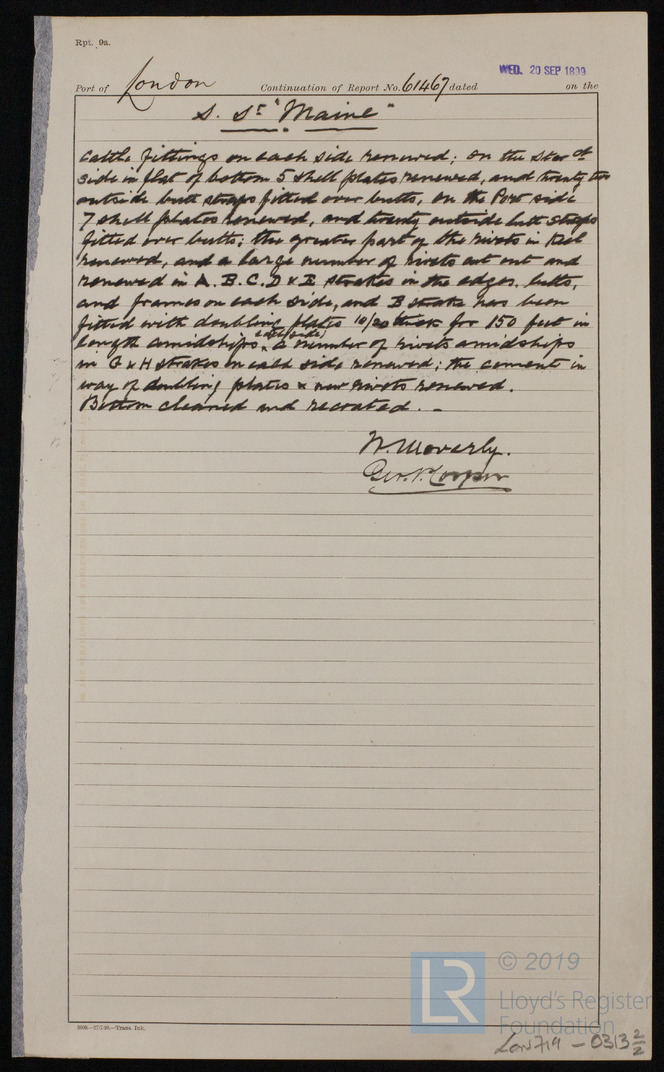 Rpt. 9a.
WED. 20 SEP 1899
Port of London Continuation of Report No. 61467 dated on the
S. Sr "Maine"
Cattle fittings on each side renewed; on the Starbd
side in flat of bottom 5 shell plates renewed, and twenty two
outside butt straps fitted over butts, on the Port side
7 shell plates renewed, and twenty outside butt straps
fitted over butts; the greater part of the rivets in Keel
renewed, and a large number of rivets cut out and
renewed in A. B. C. D & E strakes in the edges, butts,
and frames on each side, and B strake has been
fitted with doubling plates 10/20 thick for 150 feet in
length amidships (each side), a number of rivets amidships
in G & H strakes on each side renewed; the cement in
way of doubling plates & new rivets renewed.
Bottom cleaned and recoated. —
W. Moverly.
Geo. P. Cooper
© 2019
LR
Lloyd's Register
Foundation
Lon719 - 0313 2/2